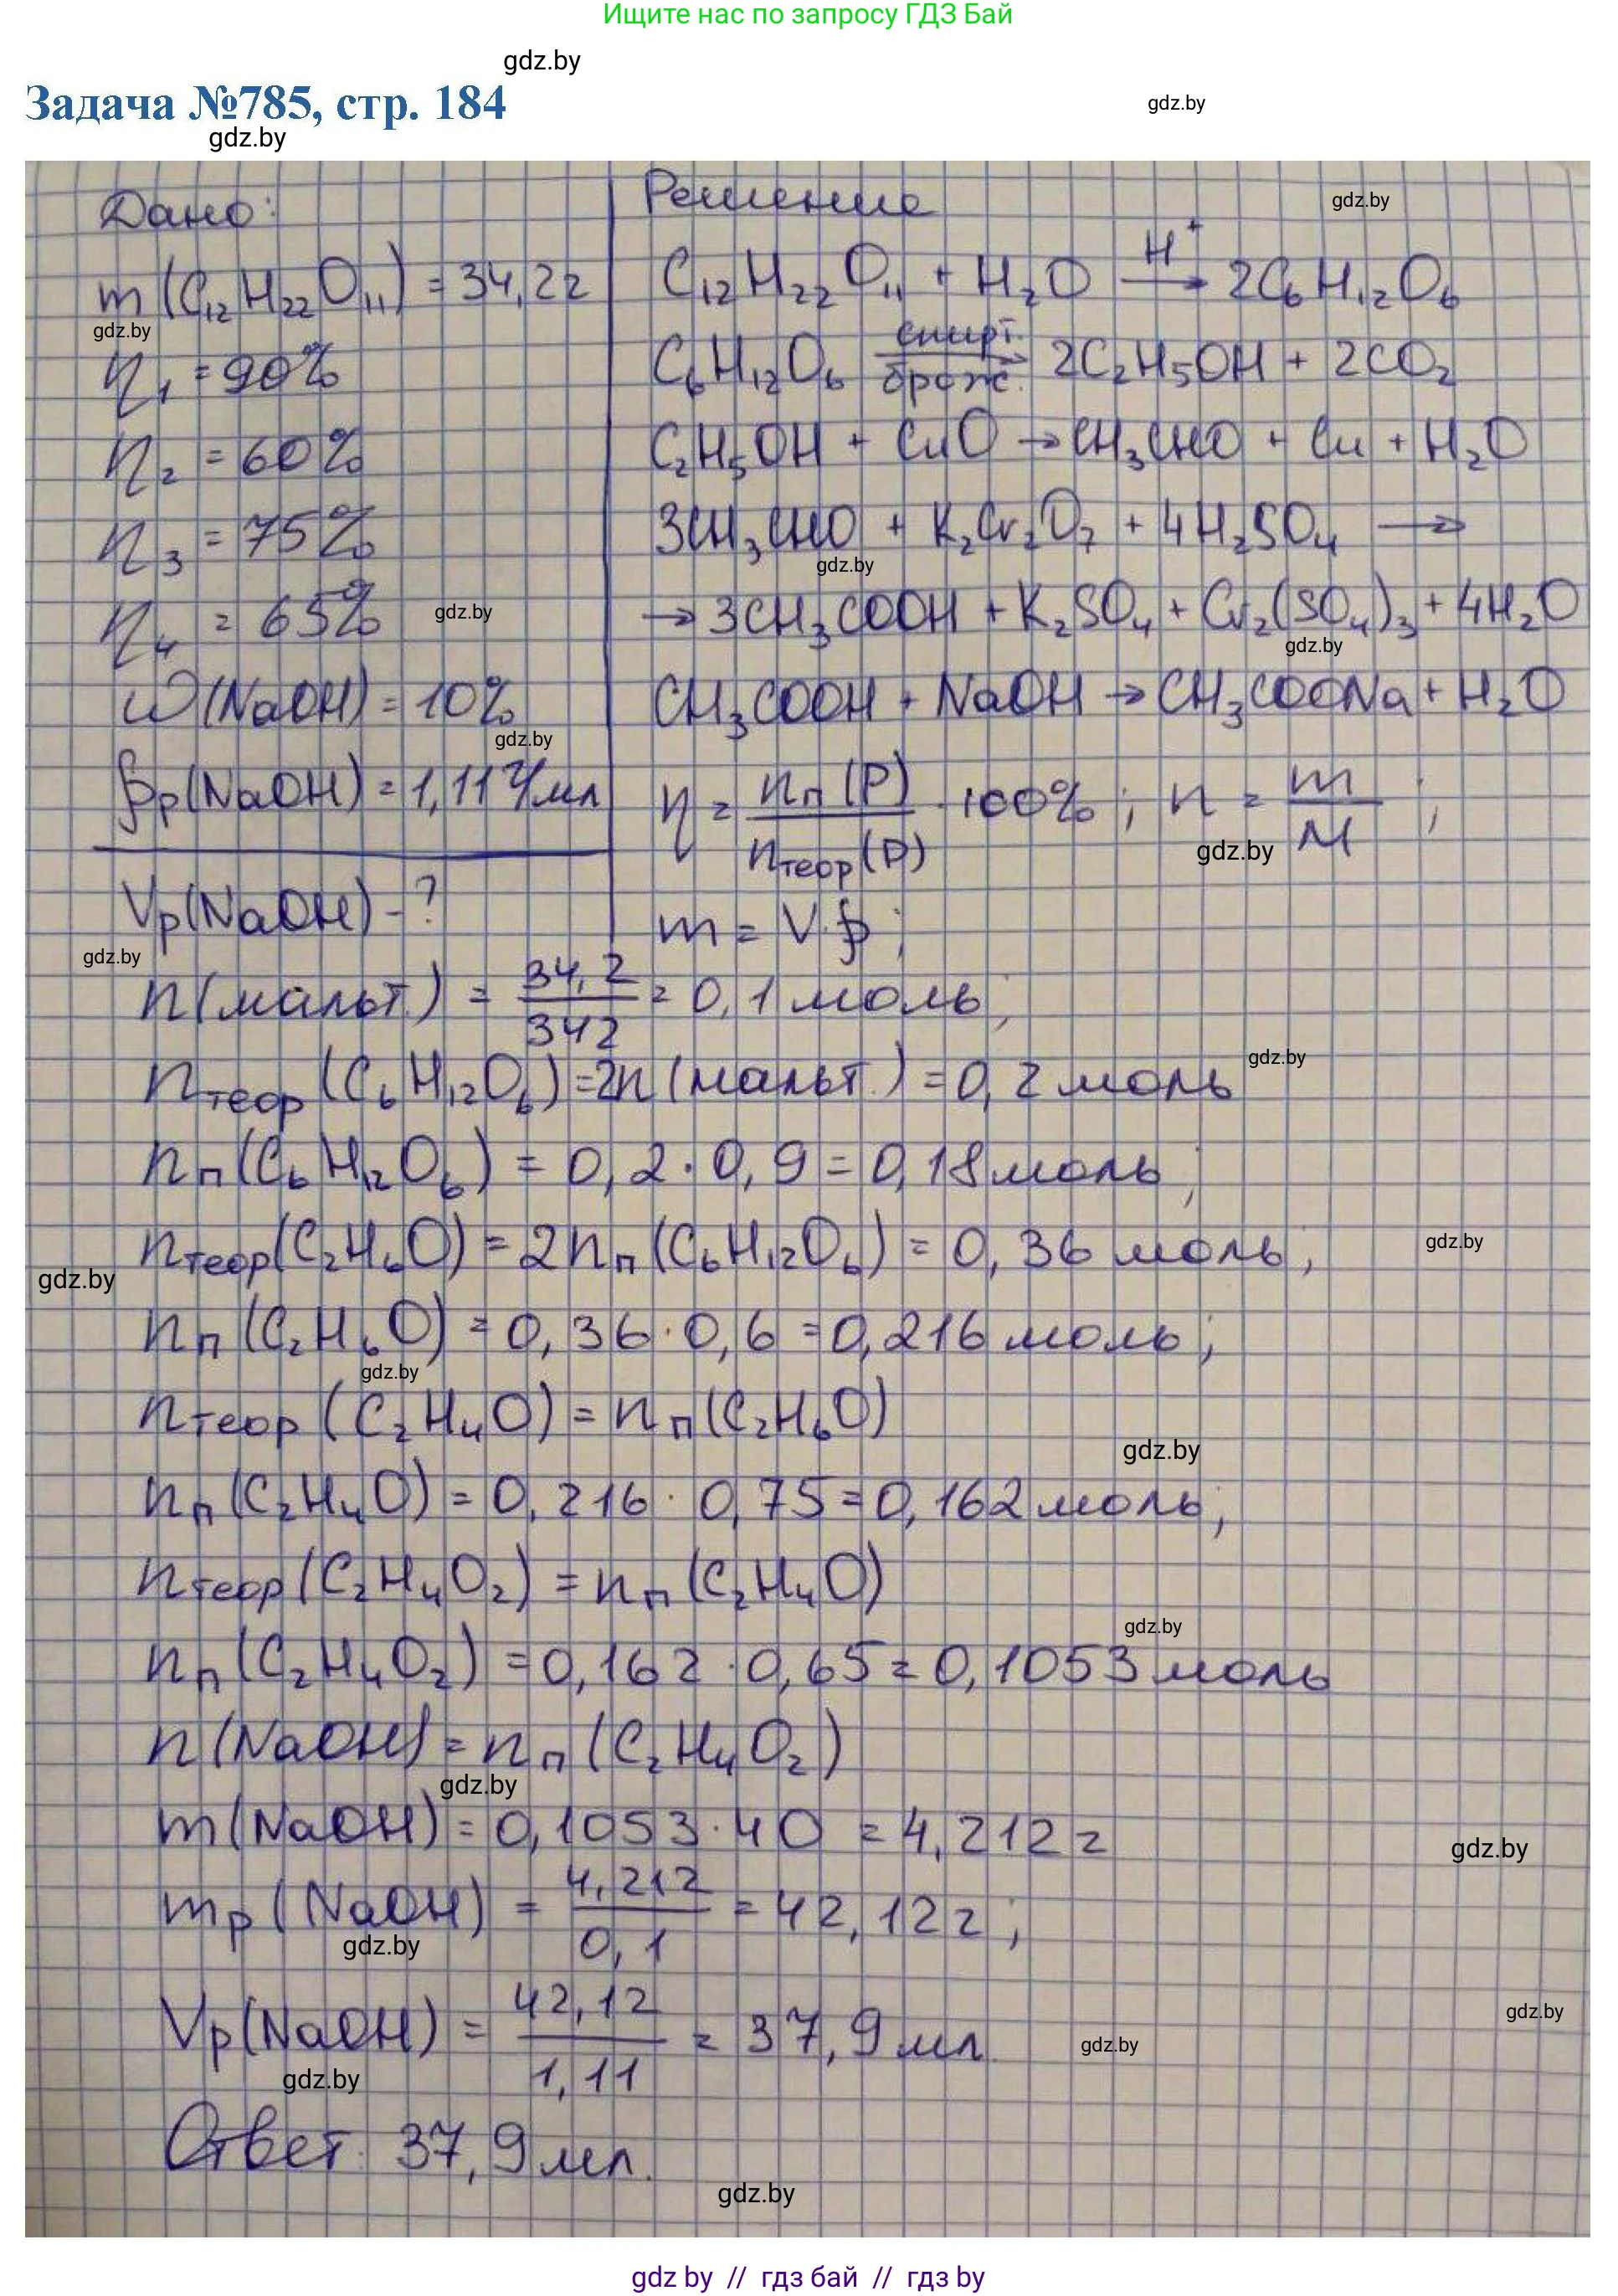 Ищите нас по запросу ГДЗ Бай
gdz.by
Задача №785, стр. 184
gdz.by
gdz.by
Дано:
m(C₁₂H₂₂O₁₁) = 34,2г
gdz.by
η₁ = 90%
η₂ = 60%
η₃ = 75%
η₄ = 65%
gdz.by
ω(NaOH) = 10%
gdz.by
ρр(NaOH) = 1,11 г/мл
Vр(NaOH) - ?
gdz.by
Решение
gdz.by
C₁₂H₂₂O₁₁ + H₂O →(H⁺) 2C₆H₁₂O₆
C₆H₁₂O₆ →(спирт. брож.) 2C₂H₅OH + 2CO₂
C₂H₅OH + CuO → CH₃CHO + Cu + H₂O
3CH₃CHO + K₂Cr₂O₇ + 4H₂SO₄ →
gdz.by
→ 3CH₃COOH + K₂SO₄ + Cr₂(SO₄)₃ + 4H₂O
gdz.by
CH₃COOH + NaOH → CH₃COONa + H₂O
η = nп(P) / nтеор(P) · 100%; n = m / M;
gdz.by
m = V·ρ;
n(мальт.) = 34,2 / 342 = 0,1 моль;
gdz.by
nтеор(C₆H₁₂O₆) = 2n(мальт.) = 0,2 моль
nп(C₆H₁₂O₆) = 0,2 · 0,9 = 0,18 моль;
nтеор(C₂H₆O) = 2nп(C₆H₁₂O₆) = 0,36 моль;
gdz.by
gdz.by
nп(C₂H₆O) = 0,36 · 0,6 = 0,216 моль;
gdz.by
nтеор(C₂H₄O) = nп(C₂H₆O)
gdz.by
nп(C₂H₄O) = 0,216 · 0,75 = 0,162 моль;
nтеор(C₂H₄O₂) = nп(C₂H₄O)
gdz.by
nп(C₂H₄O₂) = 0,162 · 0,65 = 0,1053 моль
n(NaOH) = nп(C₂H₄O₂)
gdz.by
m(NaOH) = 0,1053 · 40 = 4,212 г
gdz.by
mр(NaOH) = 4,212 / 0,1 = 42,12 г;
gdz.by
Vр(NaOH) = 42,12 / 1,11 = 37,9 мл.
gdz.by
gdz.by
gdz.by
Ответ: 37,9 мл.
gdz.by
gdz by // гдз бай // гдз by